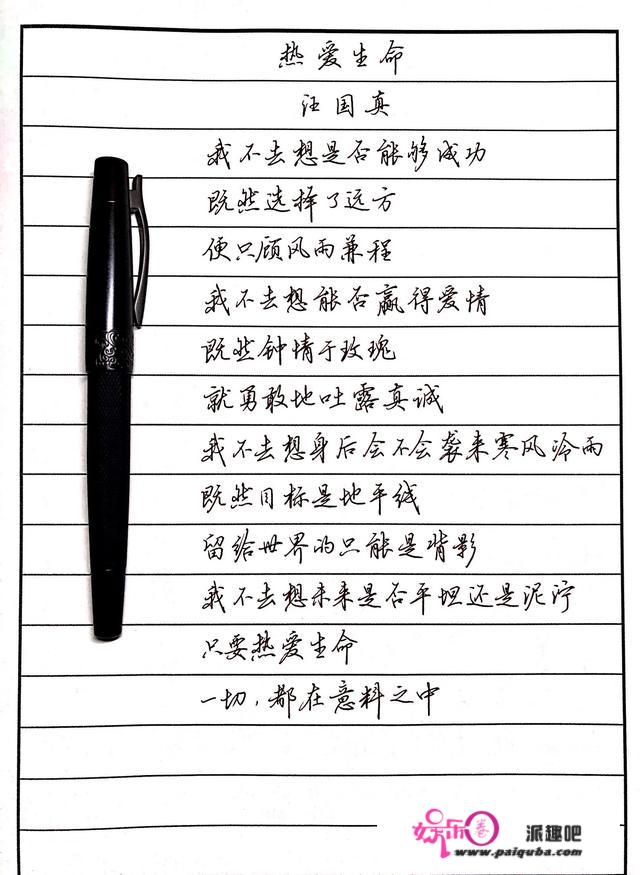 热爱生命
汪国真
我不去想是否能够成功
既然选择了远方
便只顾风雨兼程
我不去想能否赢得爱情
既然钟情于玫瑰
就勇敢地吐露真诚
我不去想身后会不会袭来寒风冷雨
既然目标是地平线
留给世界的只能是背影
我不去想未来是否平坦还是泥泞
只要热爱生命
一切,都在意料之中
娱乐圈 派趣吧
www.paiquba.com